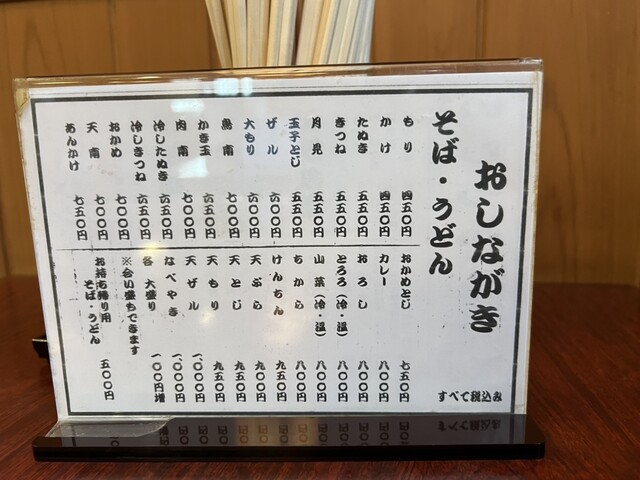 おしながき
そば・うどん
もり 四五〇円
かけ 四五〇円
たぬき 五五〇円
きつね 五五〇円
月見 五五〇円
玉子とじ 五五〇円
ザル 六〇〇円
大もり 六〇〇円
鳥南 七〇〇円
かき玉 六五〇円
肉南 七〇〇円
冷したぬき 六五〇円
冷しきつね 六五〇円
おかめ 七〇〇円
天南 七〇〇円
あんかけ 七五〇円
おかめとじ 七五〇円
カレー 八〇〇円
おろし 八〇〇円
とろろ(冷・温) 八〇〇円
山菜(冷・温) 八〇〇円
ちから 八〇〇円
けんちん 九五〇円
天ぷら 九〇〇円
天とじ 九五〇円
天もり 九五〇円
天ザル 一、〇〇〇円
なべやき 一、〇〇〇円
各 大盛り 一〇〇円増
※合い盛もできます
お持ち帰り用
そば・うどん 五〇〇円
すべて税込み